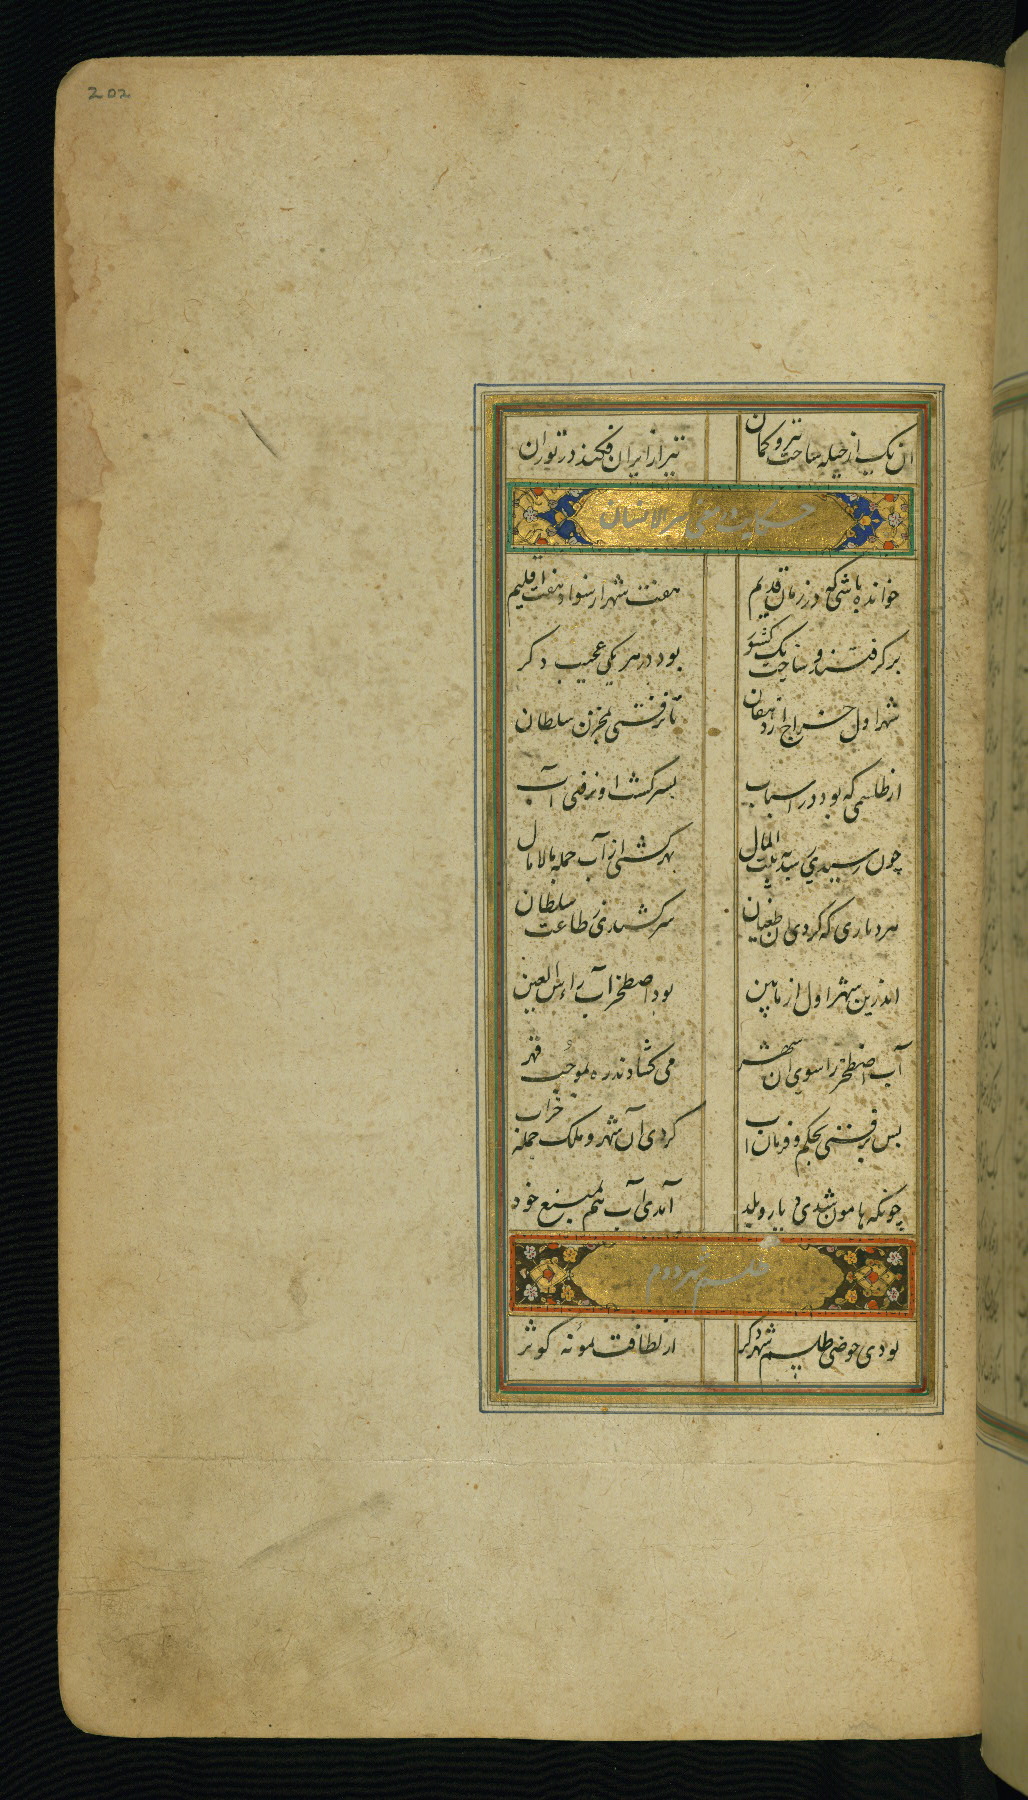 202
آن یک از حیله ساخت تیر و کمان تیر از ایران فکند در توران
حکایت فی الانسان
خوانده باشی که در زمان قدیم هفت شهر از سواد هفت اقلیم
بر گرفتند و ساخت یک کشور بود در هر یکی عجیب دکر
شهر اول خراج از دهقان تا نرفتی بمخزن سلطان
از طلسمی که بود در اسباب بسر کشت او نرفتی آب
چون رسیدی سه بیت المال بهر کشتی از آب جمله مالامال
هر دیاری که کردی آن طغیان سر کشیدی ز طاعت سلطان
اندرین شهر اول از مابین بود اصطخر آب راس العین
آب اصطخر را سوی آن شهر می کشادند ره بموجب قهر
بس برفتی بحکم و فرمان آب کردی آن شهر و ملک جمله خراب
چونکه هامون شدی دیار و بلد آمدی آب هم بمنبع خود
طلسم شهر دوم
بودی حوضی طلسم شهر دکر از لطافت نمونه کوثر